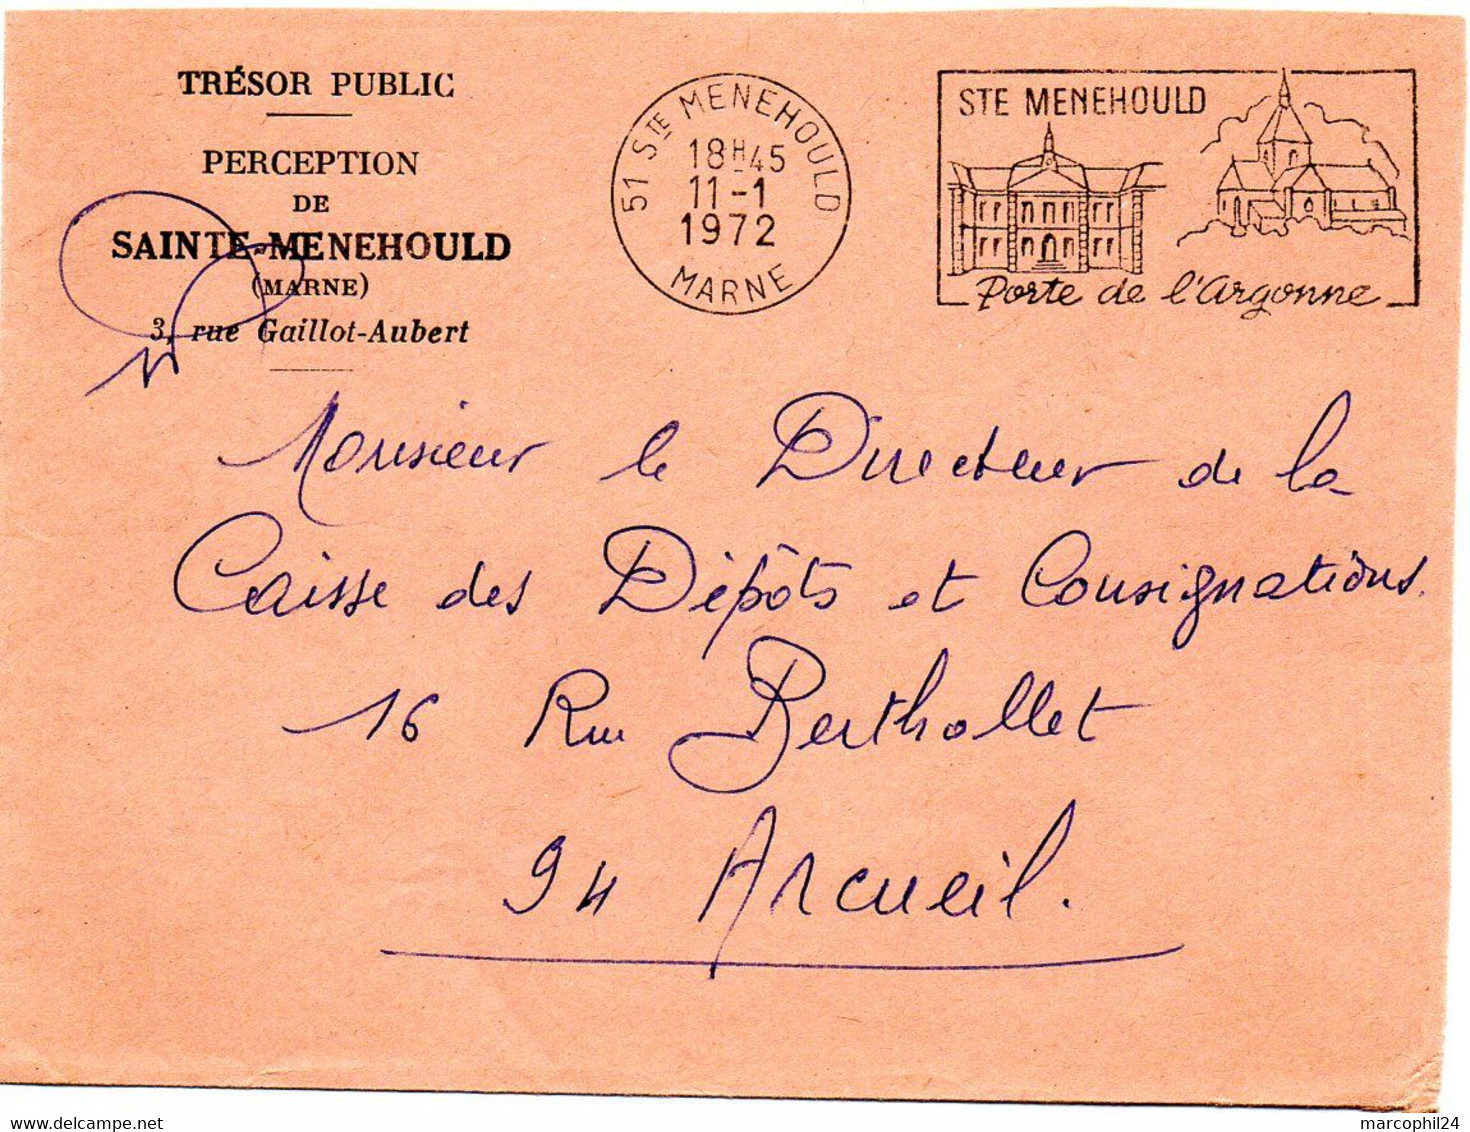 TRÉSOR PUBLIC
PERCEPTION
DE
SAINTE-MENEHOULD
(MARNE)
3, rue Gaillot-Aubert
51 STE MENEHOULD
18H45
11-1
1972
MARNE
STE MENEHOULD
Porte de l'Argonne
Monsieur le Directeur de la
Caisse des Dépôts et Consignations.
16 Rue Berthollet
94 Arcueil.
www.delcampe.net
marcophil24